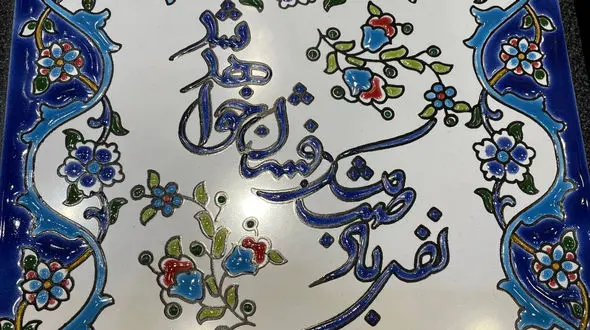 نفس باد صبا مشک فشان خواهد شد